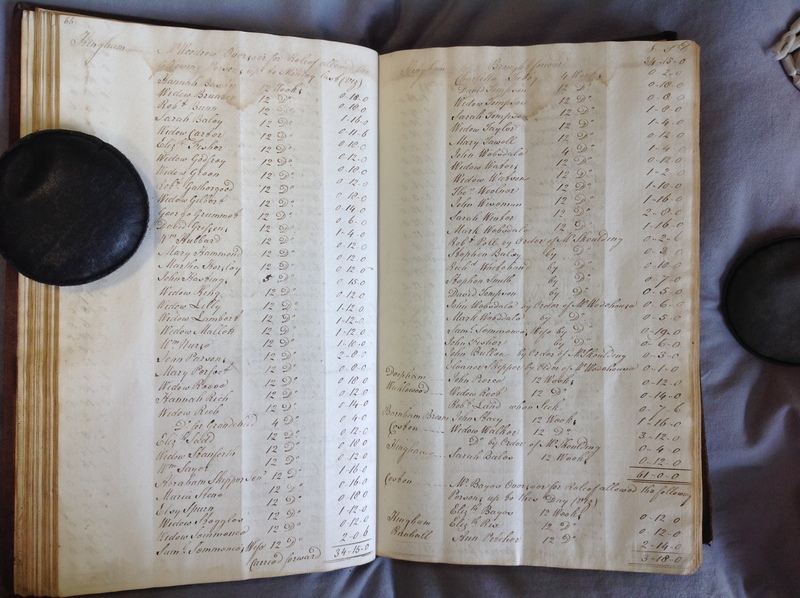 66
Hingham Overseer for Relief allowed the
following Persons up to Monday last (viz)
Hannah 12 Weeks 0-18-0
Widow 12 Do 0-18-0
Robt Bunn 12 Do 1-16-0
Sarah Baley 12 Do 0-11-6
Widow Carver 12 Do 0-18-0
Elizth Fisher 12 Do 0-12-0
Widow Godfrey 12 Do 0-18-0
Widow Green 12 Do 0-12-0
Robt Gathergood 12 Do 0-18-0
Widow Gilbert 12 Do 0-14-0
George 12 Do 0-6-0
David 12 Do 1-4-0
Wm Hubbard 12 Do 0-12-0
Mary Hammond 12 Do 0-12-0
Martha Horsley 12 Do 0-12-0
John 5 Do 0-15-0
Widow 12 Do 0-12-0
Widow Lilly 12 Do 1-12-0
Widow Lambert 12 Do 1-12-0
Widow 12 Do 1-12-0
Wm Nurse 12 Do 1-10-0
12 Do 2-8-0
Mary 12 Do 0-18-0
Widow 12 Do 0-12-0
Hannah Rich 12 Do 0-14-0
Widow Rich
Do for Grandchild 4 Do 0-4-0
Elizth 12 Do 0-12-0
Widow 12 Do 0-18-0
Wm Sayer 12 Do 0-12-0
Abraham Skipper Senr 12 Do 1-16-0
Maria 12 Do 0-16-0
Elsy Spurn 12 Do 0-18-0
Widow 12 Do 1-0-0
Widow Sommonce 12 Do 0-12-0
Saml Sommonce Wife 12 Do 2-0-6
Carried forward 34-15-0
£ S D
Hingham Brought forward 34-15-0
Charlotte 4 Weeks 0-2-0
David Tempson 12 Do 0-18-0
Widow Tempson 12 Do 0-8-0
Sarah Tempson 12 Do 1-8-0
Widow Taylor 12 Do 1-4-0
Mary Tawell 12 Do 0-12-0
John Wodsdale 4 Do 1-4-0
Widow 12 Do 0-12-0
Widow Watson 12 Do 1-2-0
Thos Woolnor 12 Do 1-10-0
John Wiseman 12 Do 1-16-0
Sarah Winter 12 Do 2-8-0
Mark Wodsdale 12 Do 1-16-0
Robt Pitt by Order of Mr Moulding 0-2-6
Stephen Baley by Do 0-3-0
by Do 0-10-0
Stephen Smith by Do
David Tempson by Do 0-5-0
John Wodsdale by Order of Mr Wodehouse 0-6-0
Mark Wodsdale by Do 0-5-0
Saml Sommonce Wife by Do 0-19-0
John Fisher by Do 0-6-0
John by Order of Mr Moulding 0-3-0
Skipper by Order of Mr Wodehouse 0-1-0
Deopham John 12 Weeks 0-12-0
Wicklewood Widow Rook 12 Do 0-14-0
Robt Land when Sick 0-7-6
Barnham Broom John 12 Weeks 1-16-0
Coston Widow Walker 12 Do 3-12-0
Do by Order of Mr Moulding 0-4-0
Hingham Sarah 12 Weeks 0-12-0
61-0-0
Coston Mr Bayes Overseer for Relief allowed the following
Persons up to this Day (viz)
Elizth Bayes 12 Weeks 0-12-0
Hingham Elizth Rix 12 Do 0-12-0
Runhall Ann Pitcher 12 Do 2-14-0
3-18-0